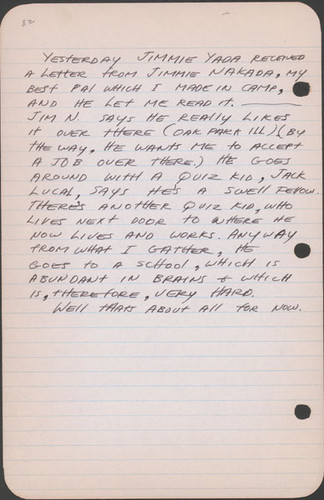 32
YESTERDAY JIMMIE YADA RECEIVED
A LETTER FROM JIMMIE NAKADA, MY
BEST PAL WHICH I MADE IN CAMP,
AND HE LET ME READ IT. ———
JIM N. SAYS HE REALLY LIKES
IT OVER THERE (OAK PARK ILL) (BY
THE WAY, HE WANTS ME TO ACCEPT
A JOB OVER THERE.) HE GOES
AROUND WITH A QUIZ KID, JACK
LUCAL, SAYS HE'S A SWELL FELLOW.
THERE'S ANOTHER QUIZ KID, WHO
LIVES NEXT DOOR TO WHERE HE
NOW LIVES AND WORKS. ANYWAY
FROM WHAT I GATHER, HE
GOES TO A SCHOOL, WHICH IS
ABUNDANT IN BRAINS & WHICH
IS, THEREFORE, VERY HARD.
WELL THATS ABOUT ALL FOR NOW.